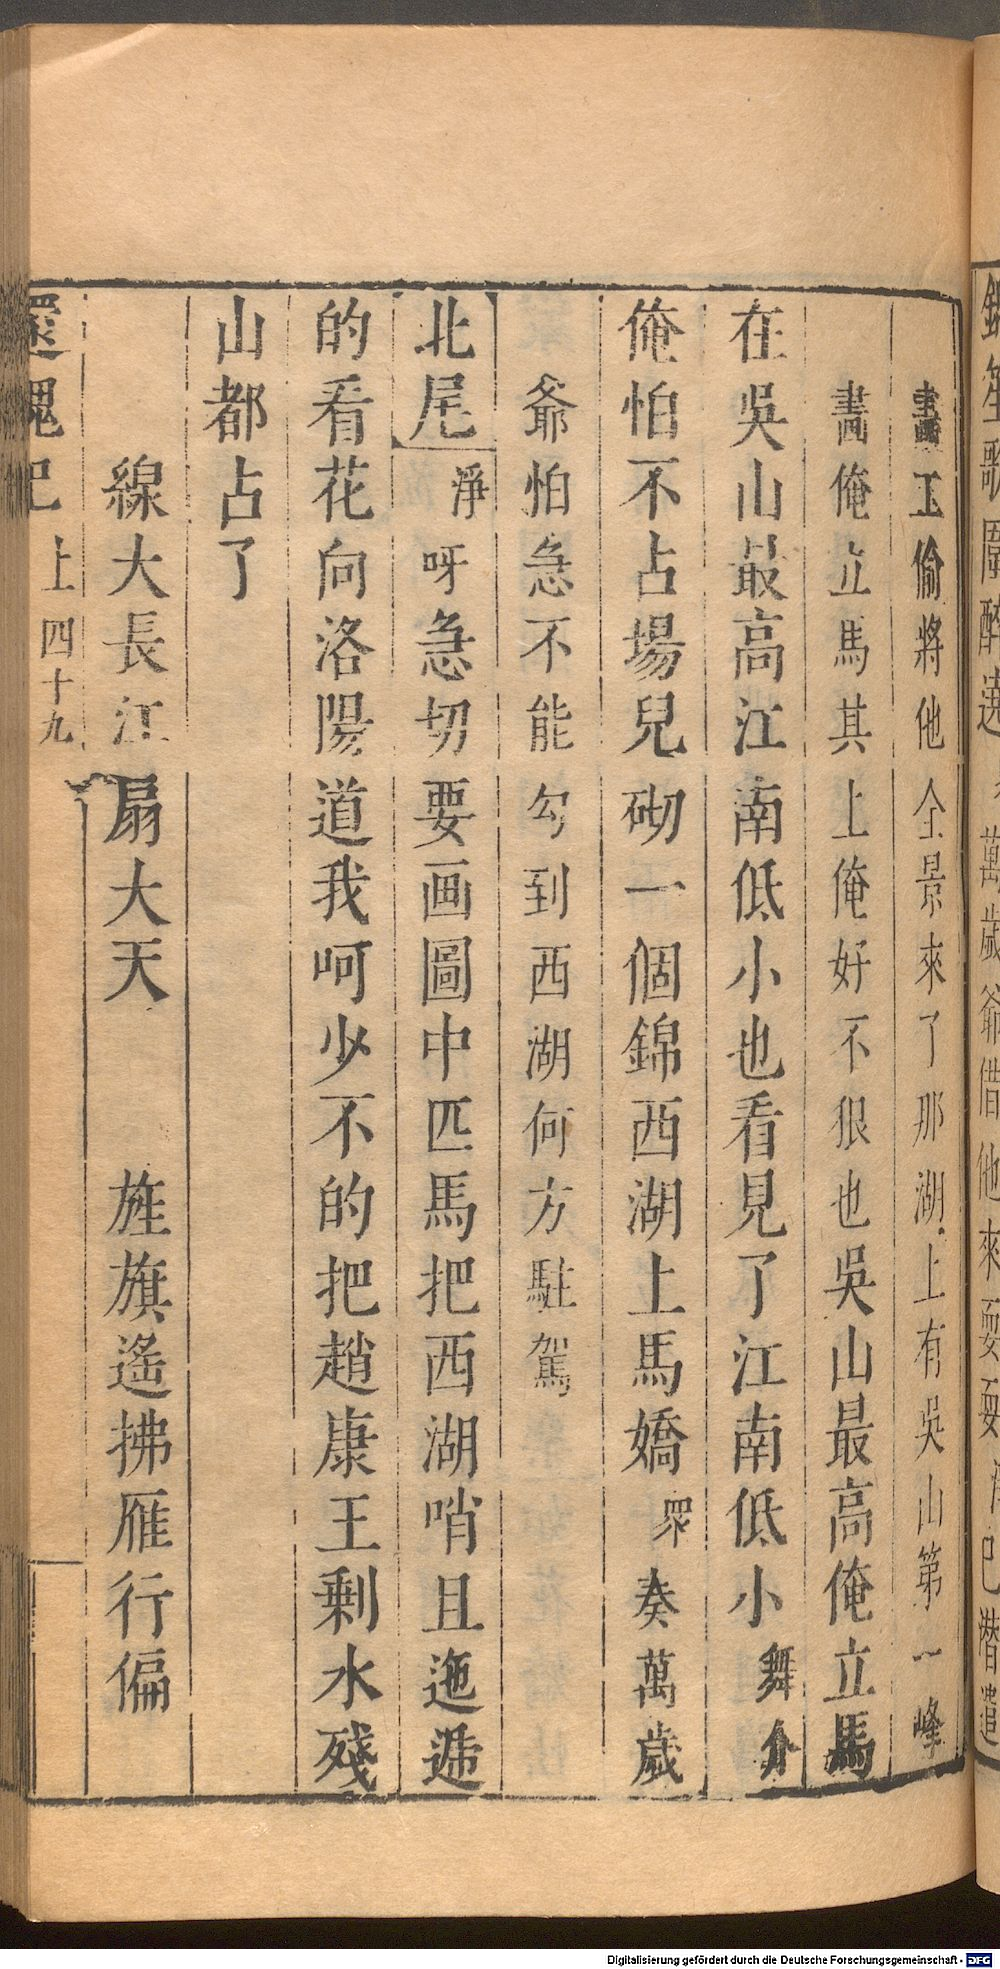 畫工偷將他全景來了那湖上有吳山第一峰
畫俺立馬其上俺好不狠也吳山最高俺立馬
在吳山最高江南低小也看見了江南低小舞介
俺怕不占場兒砌一個錦西湖上馬嬌衆奏萬歲
爺怕急不能勾到西湖何方駐駕
北尾淨呀急切要画圖中匹馬把西湖哨且迤逓
的看花向洛陽道我呵少不的把趙康王剩水殘
山都占了
線大長江扇大天　旌旗遙拂雁行偏
還魂記 上 四十九
Digitalisierung gefördert durch die Deutsche Forschungsgemeinschaft - DFG